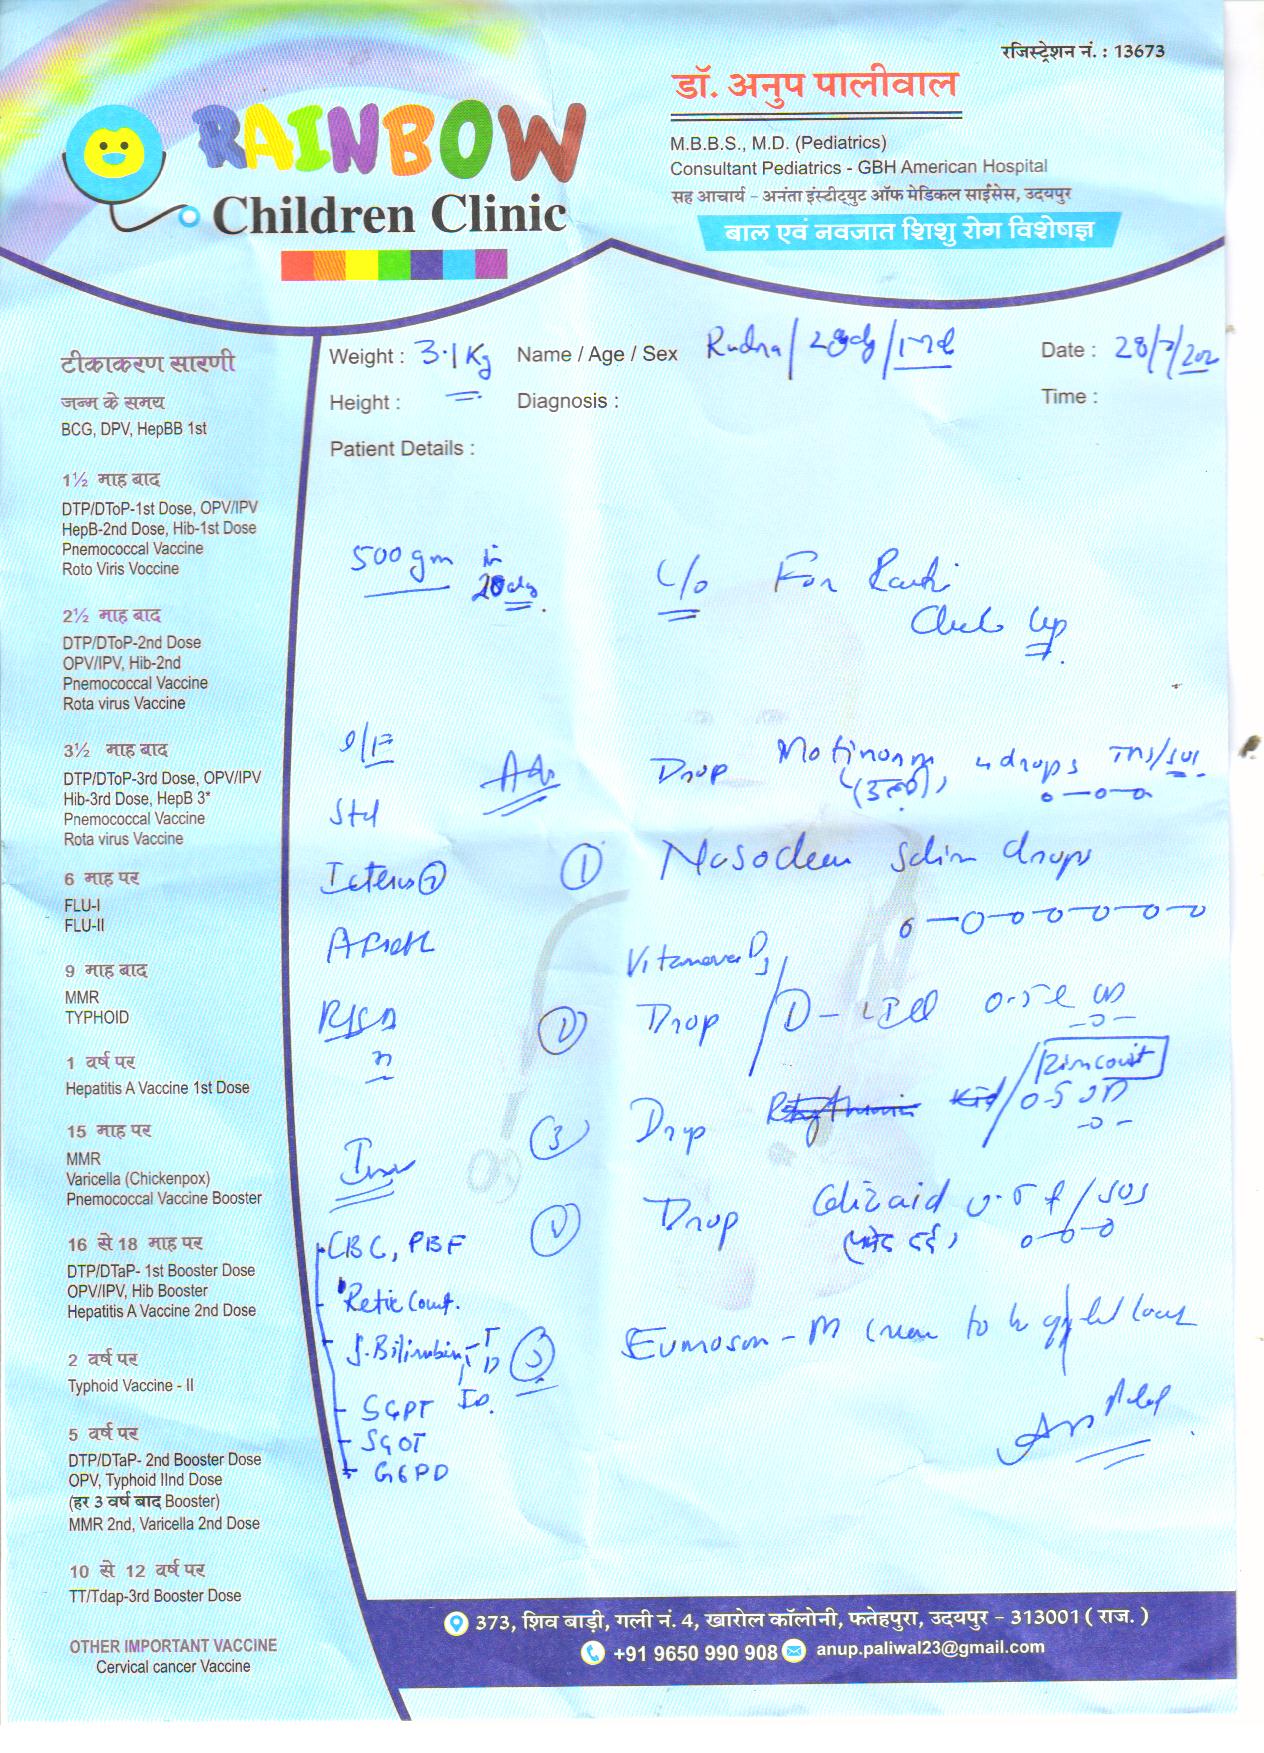 रजिस्ट्रेशन नं. : 13673
RAINBOW
Children Clinic
डॉ. अनुप पालीवाल
M.B.B.S., M.D. (Pediatrics)
Consultant Pediatrics - GBH American Hospital
सह आचार्य - अनंता इंस्टीट्युट ऑफ मेडिकल साईंसेस, उदयपुर
बाल एवं नवजात शिशु रोग विशेषज्ञ
टीकाकरण सारणी
जन्म के समय
BCG, DPV, HepBB 1st
1½ माह बाद
DTP/DToP-1st Dose, OPV/IPV
HepB-2nd Dose, Hib-1st Dose
Pnemococcal Vaccine
Roto Viris Voccine
2½ माह बाद
DTP/DToP-2nd Dose
OPV/IPV, Hib-2nd
Pnemococcal Vaccine
Rota virus Vaccine
3½ माह बाद
DTP/DToP-3rd Dose, OPV/IPV
Hib-3rd Dose, HepB 3*
Pnemococcal Vaccine
Rota virus Vaccine
6 माह पर
FLU-I
FLU-II
9 माह बाद
MMR
TYPHOID
1 वर्ष पर
Hepatitis A Vaccine 1st Dose
15 माह पर
MMR
Varicella (Chickenpox)
Pnemococcal Vaccine Booster
16 से 18 माह पर
DTP/DTaP- 1st Booster Dose
OPV/IPV, Hib Booster
Hepatitis A Vaccine 2nd Dose
2 वर्ष पर
Typhoid Vaccine - II
5 वर्ष पर
DTP/DTaP- 2nd Booster Dose
OPV, Typhoid IInd Dose
(हर 3 वर्ष बाद Booster)
MMR 2nd, Varicella 2nd Dose
10 से 12 वर्ष पर
TT/Tdap-3rd Booster Dose
OTHER IMPORTANT VACCINE
Cervical cancer Vaccine
Weight : 3.1 Kg Name / Age / Sex Rudra / Date : 28/7/202
Height : Diagnosis : Time :
Patient Details :
500 gm in
C/o For
Check Up
Adv
Drop 4 drops
(उल्टी)
Icterus
① Nasoclear Saline drops
Drop / D-
③ Drop 0.5
Inv
Drop Colizaid 0.5 / SOS
(पेट दर्द)
CBC, PBF
Retic Count.
S. Bilirubin - T
D
SGPT ID.
SGOT
G6PD
Eumosone - M cream to be applied
373, शिव बाड़ी, गली नं. 4, खारोल कॉलोनी, फतेहपुरा, उदयपुर - 313001 ( राज. )
+91 9650 990 908 anup.paliwal23@gmail.com